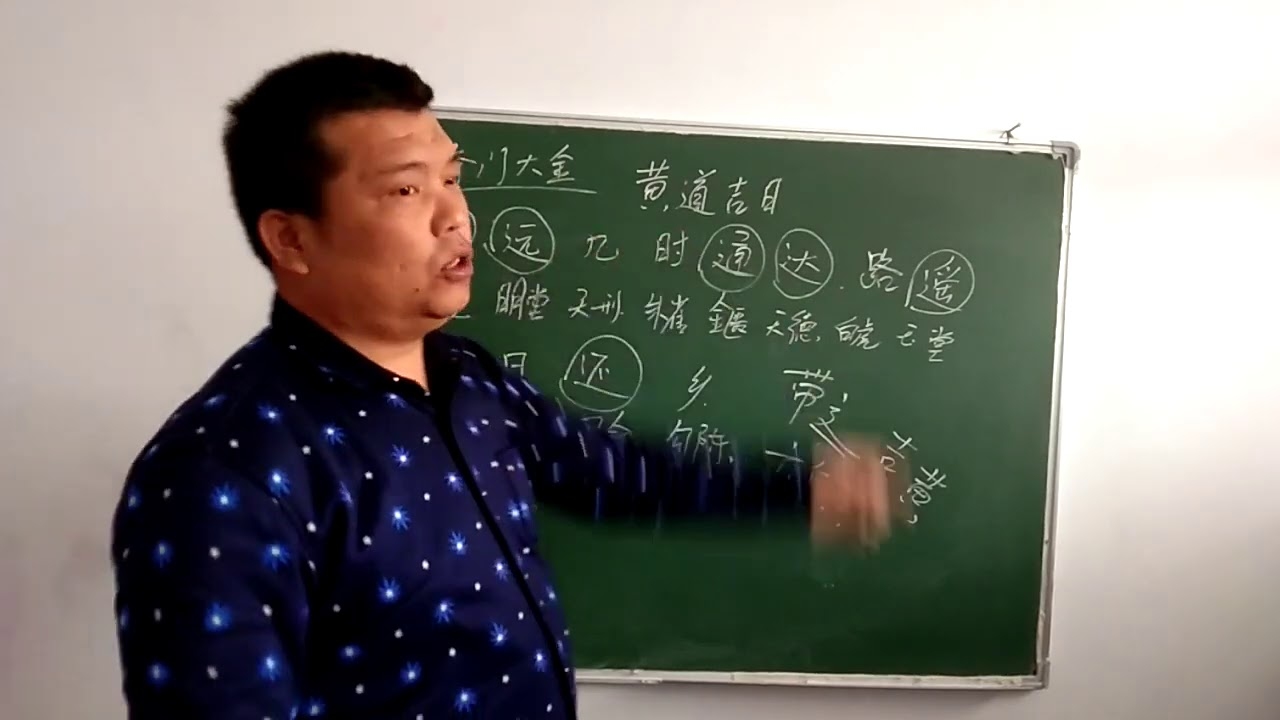 门大全 黄道吉日
远 几 时 通 达 路 遥
明堂 天刑 朱雀 金匮 天德 白虎 玉堂
日 还 乡 带
勾陈
吉
黄